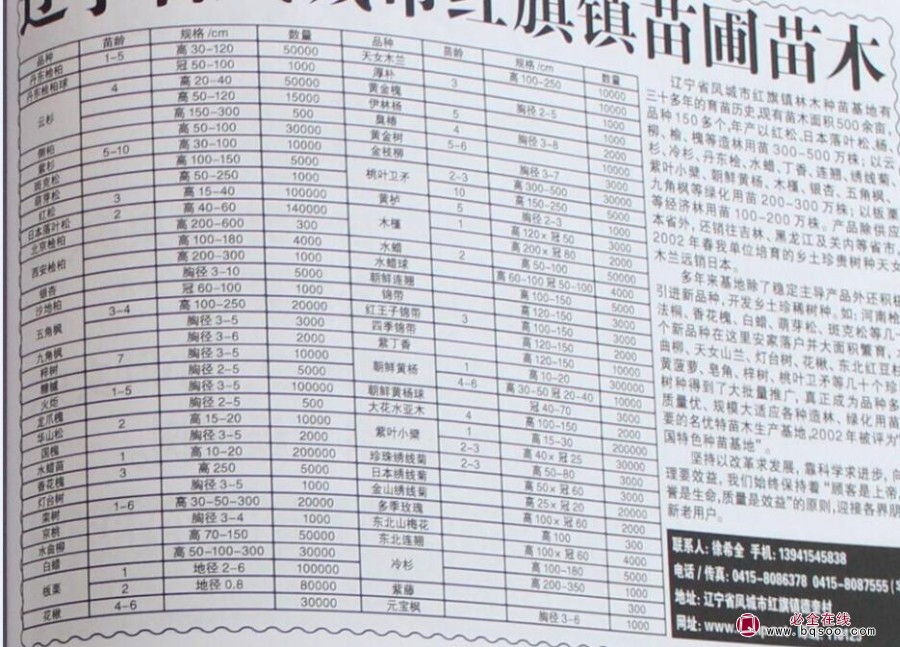 辽宁省凤城市红旗镇苗圃苗木
品种 苗龄 规格/cm 数量
丹东桧柏 1-5 高30-120 50000
丹东桧柏球 冠50-100 1000
云杉 4 高20-40 50000
高50-120 15000
高150-300 500
侧柏 高50-100 30000
紫杉 5-10 高30-100 10000
斑克松 高100-150 5000
萌芽松 高50-250 1000
红松 3 高15-40 100000
日本落叶松 2 高40-60 140000
北京桧柏 高200-600 300
西安桧柏 高100-180 4000
高200-300 1000
银杏 胸径3-10 5000
沙地柏 冠60-100 1000
五角枫 3-4 高100-250 20000
胸径3-5 3000
九角枫 胸径3-6 2000
梓树 7 胸径3-5 10000
糖槭 胸径2-5 5000
火炬 1-5 胸径3-5 100000
龙爪槐 胸径2-5 500
华山松 2 高15-20 10000
国槐 胸径3-5 2000
水蜡苗 1 高10-20 200000
香花槐 3 高250 5000
灯台树 胸径3-5 1000
栾树 1-6 高30-50-300 20000
京桃 胸径3-4 1000
水曲柳 高70-150 50000
白蜡 高50-100-300 30000
板栗 1 地径2-6 100000
2 地径0.8 80000
花楸 4-6 30000
品种 苗龄 规格/cm 数量
天女木兰 3 高100-250 10000
厚朴 1000
黄金槐 10000
伊林杨 5 胸径2-5 1000
臭椿 4 10000
黄金树 5-6 胸径3-8 2000
金枝柳 10000
桃叶卫矛 2-3 胸径3-7 3000
10 高300-500 30000
黄栌 5 高150-250 5000
木槿 1 胸径2-3 1000
高120×冠50 3000
水蜡 2 高200×冠80 2000
水蜡球 高50-100 50000
朝鲜连翘 高60-100 冠50-100 4000
锦带 高100-150 5000
红王子锦带 3 高120-150 3000
四季锦带 高100-150 3000
紫丁香 高120-150 2000
朝鲜黄杨 1 高120-150 10000
4-6 高10-20 300000
朝鲜黄杨球 高30-50 冠20-40 10000
大花水亚木 4 冠40-70 3000
紫叶小檗 1 高100-150 2000
2-3 高15-30 200000
珍珠绣线菊 2-3 高40×冠25 30000
日本绣线菊 高50-80 3000
金山绣线菊 高50×冠60 3000
多季玫瑰 高25×冠20 20000
东北山梅花 高100×冠60 2000
东北连翘 高100 300
冷杉 高100×冠60 4000
高100-180 5000
紫藤 高200-350 1000
元宝枫 300
胸径3-6 1000
辽宁省凤城市红旗镇林木种苗基地有
三十多年的育苗历史,现有苗木面积500余亩,
品种150多个,年产以红松、日本落叶松、杨、
柳、榆、槐等造林用苗300-500万株；以云
杉、冷杉、丹东桧、水蜡、丁香、连翘、绣线菊、
紫叶小檗、朝鲜黄杨、木槿、银杏、五角枫、
九角枫等绿化用苗200-300万株；以板栗
等经济林用苗100-200万株。产品除供应
本省外，还销往吉林、黑龙江及关内等省市,
2002年春我单位培育的乡土珍贵树种天女
木兰远销日本。
多年来基地除了稳定主导产品外还积极
引进新品种，开发乡土珍稀树种。如:河南桧
法桐、香花槐、白蜡、萌芽松、斑克松等几十
个新品种在这里安家落户并大面积繁育，水
曲柳、天女山兰、灯台树、花楸、东北红豆杉
黄菠萝、皂角、梓树、桃叶卫矛等几十个珍
树种得到了大批量推广,真正成为品种多
质量优、规模大适应各种造林、绿化用苗
要的名优特苗木生产基地,2002年被评为“
国特色种苗基地”。
坚持以改革求发展，靠科学求进步，向
理要效益，我们始终保持着“顾客是上帝,
誉是生命,质量是效益”的原则,迎接各界朋
新老用户。
联系人: 徐希全 手机: 13941545838
电话/传真: 0415-8086378 0415-8087555
地址: 辽宁省凤城市红旗镇
网址: www.
必全网
www.bqsoo.com